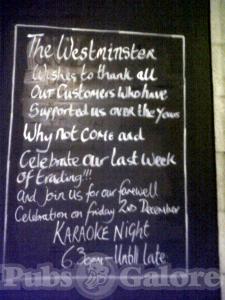 The Westminster
Wishes to thank all
Our Customers who have
Supported us over the Years
Why not come and
Celebrate our last week
of trading!!!
And join us for our farewell
Celebration on Friday 2nd December
KARAOKE NIGHT
6.30pm - Until Late
Pubs Galore